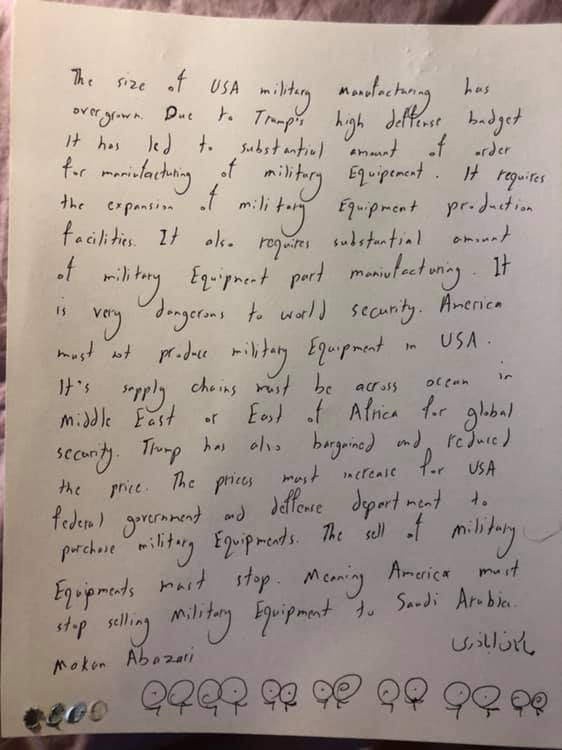 The size of USA military manufacturing has
overgrown. Due to Trump's high deffense budget
It has led to substantial amount of order
for maniufacturing of military Equipement. It requires
the expansion of military Equipment production
facilities. It also requires substantial amount
of military Equipment part maniufacturing. It
is very dangerons to world security. America
must not produce military Equipment in USA.
It's supply chains must be across ocean in
Middle East or East of Africa for global
security. Trump has also bargained and reduced
the price. The prices must increase for USA
federal government and deffense department to
purchase military Equipments. The sell of Military
Equipments must stop. Meaning America must
stop selling Military Equipment to Saudi Arabia.
Makan Abazari